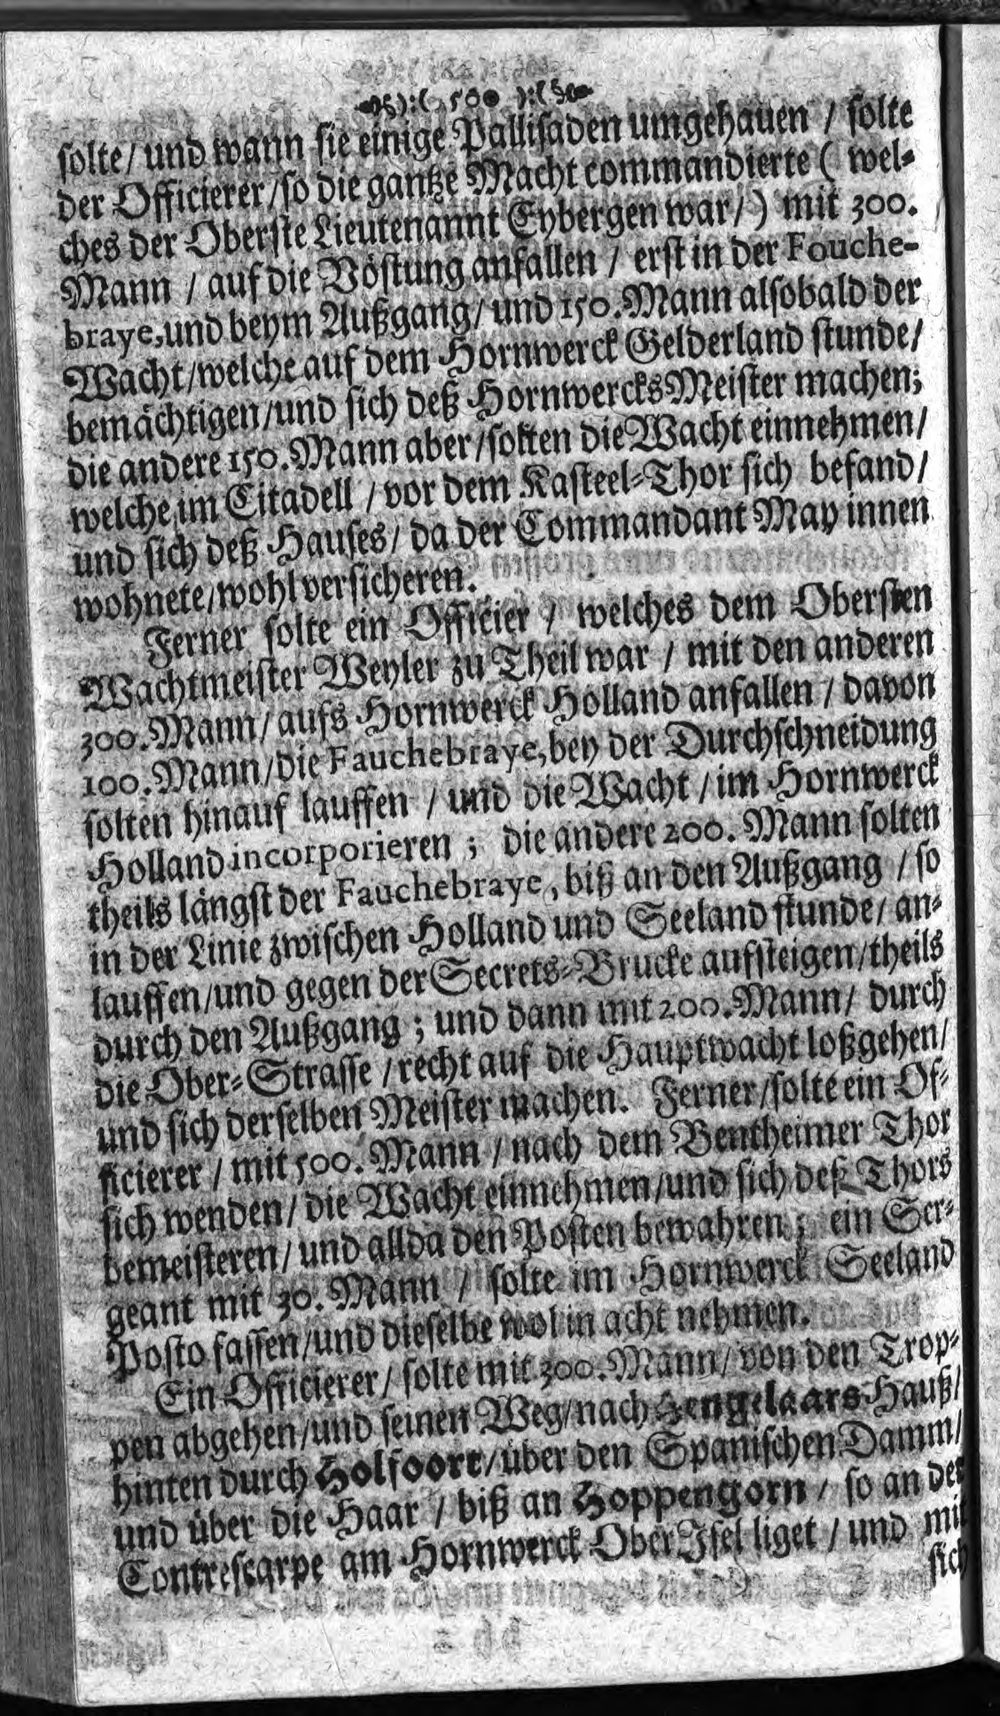 ):( 500 ):(
ſolte/ und wann ſie einige Palliſaden umgehauen / ſolte
der Officierer/ſo die gantze Macht commandierte ( wel⸗
ches der Oberſte Lieutenannt Eybergen war/) mit 300.
Mann / auf die Vöſtung anfallen / erſt in der Fouche-
braye, und beym Außgang/ und 150. Mann alſobald der
Wacht/welche auf dem Hornwerck Gelderland ſtunde/
bemächtigen/und ſich deß Hornwercks Meiſter machen;
die andere 150. Mann aber/ſolten die Wacht einnehmen/
welche im Citadell / vor dem Kaſteel⸗Thor ſich befand/
und ſich deß Hauſes/ da der Commandant May innen
wohnete/wohl verſicheren.
Ferner ſolte ein Officier / welches dem Oberſten
Wachtmeiſter Weyler zu Theil war / mit den anderen
300. Mann/ aufs Hornwerck Holland anfallen / davon
100. Mann/die Fauchebraye, bey der Durchſchneidung
ſolten hinauf lauffen / und die Wacht / im Hornwerck
Holland incorporieren ; die andere 200. Mann ſolten
theils längſt der Fauchebraye, biß an den Außgang / ſo
in der Linie zwiſchen Holland und Seeland ſtunde/ an⸗
lauffen/und gegen der Secrets⸗Brucke aufſteigen/theils
durch den Außgang ; und dann mit 200. Mann/ durch
die Ober⸗Straſſe / recht auf die Hauptwacht loßgehen/
und ſich derſelben Meiſter machen. Ferner/ſolte ein Of⸗
ficierer / mit 500. Mann / nach dem Bentheimer Thor
ſich wenden/ die Wacht einnehmen/und ſich deß Thors
bemeiſteren/ und allda den Poſten bewahren ; ein Ser⸗
geant mit 30. Mann / ſolte im Hornwerck Seeland
Poſto faſſen/und dieſelbe wol in acht nehmen.
Ein Officierer/ ſolte mit 300. Mann/ von den Trop⸗
pen abgehen/und ſeinen Weg/nach Hengelaars Hauß/
hinten durch Holfoort/über den Spaniſchen Damm/
und über die Haar / biß an Hoppengorn / ſo an der
Contreſcarpe am Hornwerck Ober Iſel liget / und mit
ſich